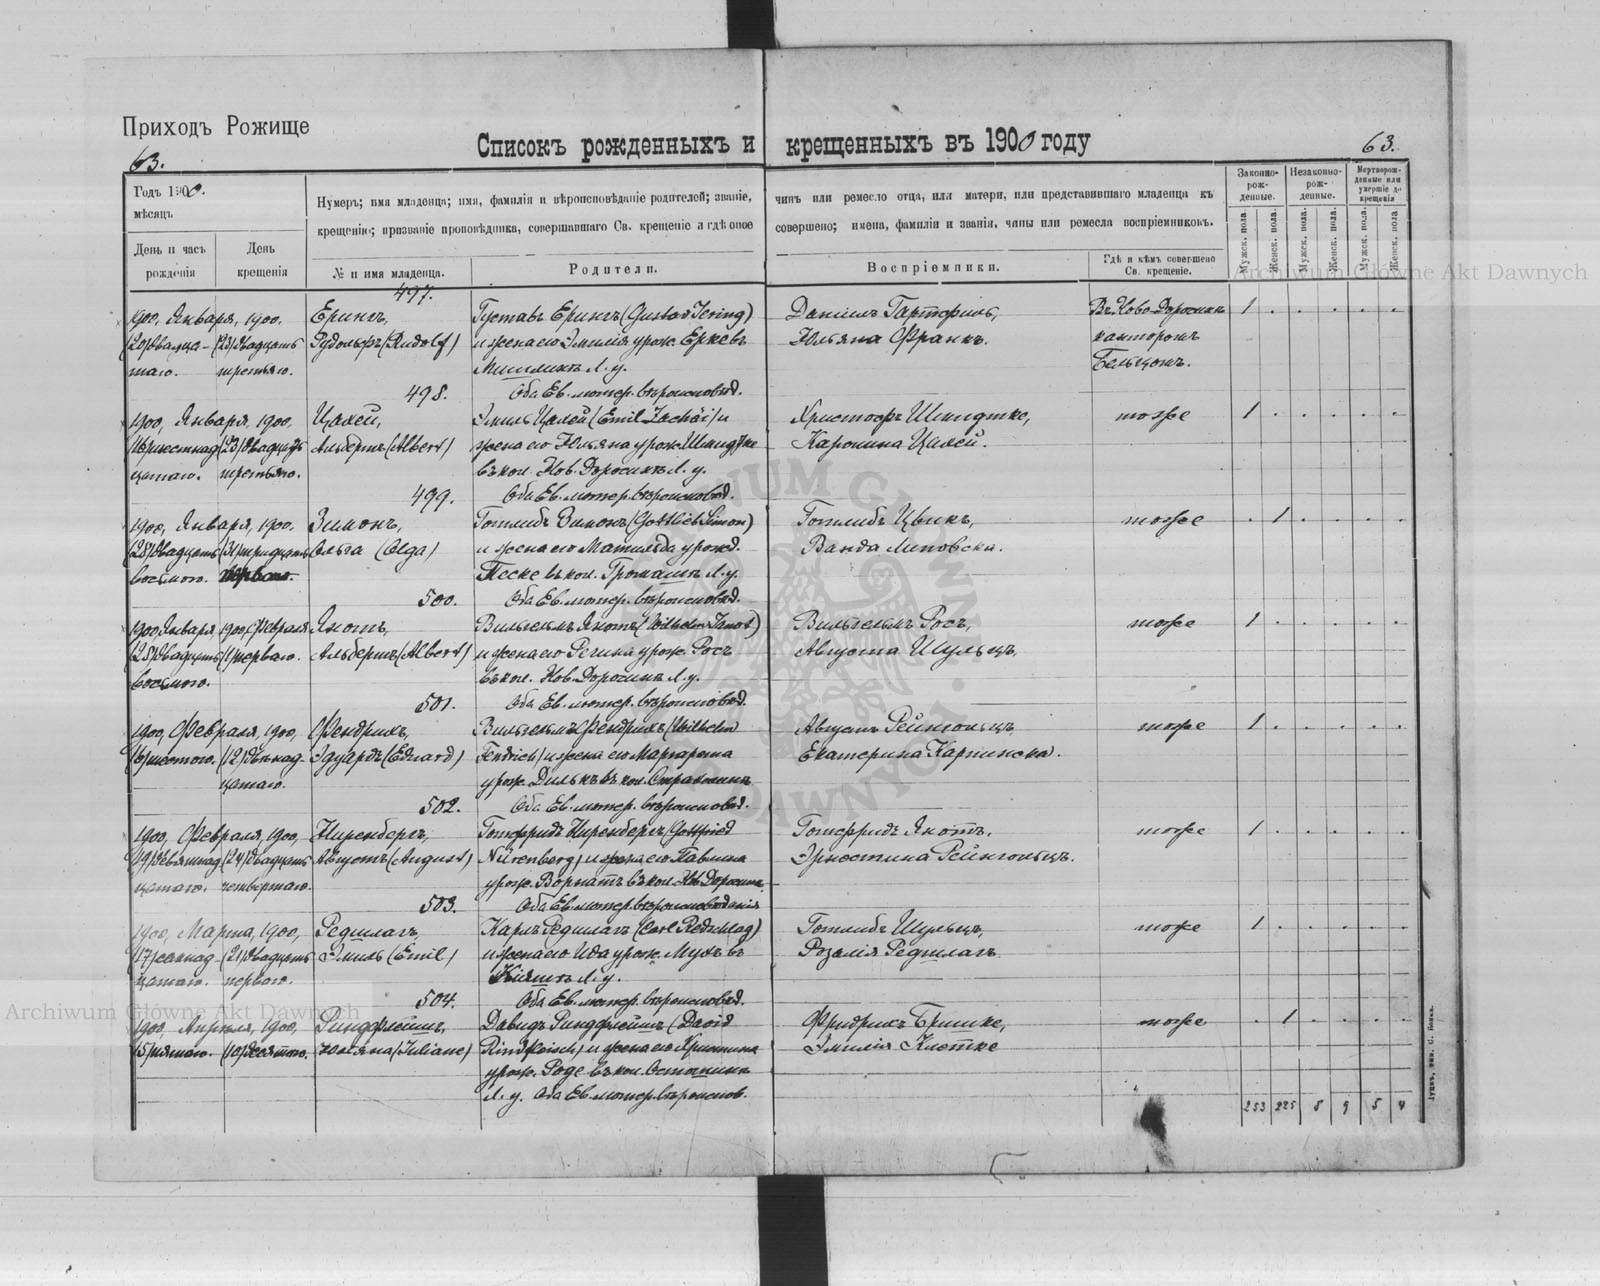 Приходъ Рожище
63.
Списокъ рожденныхъ и крещенныхъ въ 1900 году
63.
Годъ 1900.
мѣсяцъ
День и часъ рожденія
День крещенія
Нумеръ; имя младенца; имя, фамилія и вѣроисповѣданіе родителей; званіе, чинъ или ремесло отца, или матери, или представившаго младенца къ
крещенію; призваніе проповѣдника, совершавшаго Св. крещеніе и гдѣ оное совершено; имена, фамиліи и званія, чины или ремесла воспріемниковъ.
№ и имя младенца.
Родители.
Воспріемники.
Гдѣ и кѣмъ совершено Св. крещеніе.
Законно-рож-денные.
Незаконно-рож-денные.
Мертворож-денные или умершіе до крещенія
Мужск. пола.
Женск. пола.
Мужск. пола.
Женск. пола.
Мужск. пола.
Женск. пола.
497.
1900, Января, 1900,
Ерингъ,
Густавъ Ерингъ (Gustav Jering)
Даніилъ
Въ Ново-Доросинѣ
1
(20) двадца-
(23) двадцать
Рудольфъ (Rudolf)
и жена его Эмилія урож. Ерке въ
Юльяна Франкъ.
канторомъ
таго.
третьяго.
Л. у.
498.
Оба Ев. лютер. вѣроисповѣд.
1900, Января, 1900,
Цахей,
Эмиль Цахей (Emil Zachäi) и
Христофъ Шмидтке,
тоже
1
(16) шестнад
(23) двадцать
Альбертъ (Albert)
жена его Юльяна урож. Шмидтке
Каролина Цахей.
цатаго.
третьяго.
въ кол. Нов. Доросинѣ Л. у.
499.
Оба Ев. лютер. вѣроисповѣд.
1900, Января, 1900,
Зимонъ,
Готлибъ Зимонъ (Gottlieb Simon)
Готлибъ Цвикъ,
тоже
1
(28) двадцать
(31) тридцать
Ольга (Olga)
и жена его Матильда урожд.
Ванда Липовски.
восьмого.
перваго.
Теске въ кол. Громашъ Л. у.
500.
Оба Ев. лютер. вѣроисповѣд.
1900, Января,
1900, Февраля
Якотъ,
Вильгельмъ Якотъ (Wilhelm Jakot)
Вильгельмъ Росъ,
тоже
1
(28) двадцать
(1) перваго.
Альбертъ (Albert)
и жена его Регина урож. Росъ
Августа Шульцъ.
восьмого.
въ кол. Нов. Доросинѣ Л. у.
501.
Оба Ев. лютер. вѣроисповѣд.
1900, Февраля, 1900,
Фендрихъ,
Вильгельмъ Фендрихъ (Wilhelm
Августъ Рейнгольцъ,
тоже
1
(6) шестого.
(12) двѣнад-
Эдуардъ (Eduard)
Fendrich) и жена его Маргарета
Екатерина Карпински.
цатаго.
урож. Дилькъ въ кол.
502.
Оба Ев. лютер. вѣроисповѣд.
1900, Февраля, 1900,
Ниренбергъ,
Готфридъ Ниренбергъ (Gottfried
Готфридъ Якотъ,
тоже
1
(19) девятнад
(24) двадцать
Августъ (August)
Nürenberg) и жена его Павлина
Эрнестина Рейнгольцъ.
цатаго.
четвертаго.
урож. Ворнатъ въ кол. Нов. Доросинѣ.
503.
Оба Ев. лютер. вѣроисповѣданія
1900, Марта, 1900,
Редшлагъ,
Карлъ Редшлагъ (Carl Redschlag)
Готлибъ Шульцъ,
тоже
1
(17) семнад-
(21) двадцать
Эмиль (Emil)
и жена его Ида урож. Мухъ въ
Розалія Редшлагъ
цатаго.
перваго.
Л. у.
504.
Оба Ев. лютер. вѣроисповѣд.
1900, Апрѣля, 1900,
Риндфлейшъ,
Давидъ Риндфлейшъ (David
Фридрихъ Бришке,
тоже
1
(5) пятаго.
(10) десятаго.
Юльяна (Juliane)
Rindfleisch) и жена его Христина
Эмилія Клетке
урож. Роде въ кол.
Л. у. Оба Ев. лютер. вѣроиспов.
253 225 8 9 5 4
Archiwum Główne Akt Dawnych
Archiwum Główne Akt Dawnych